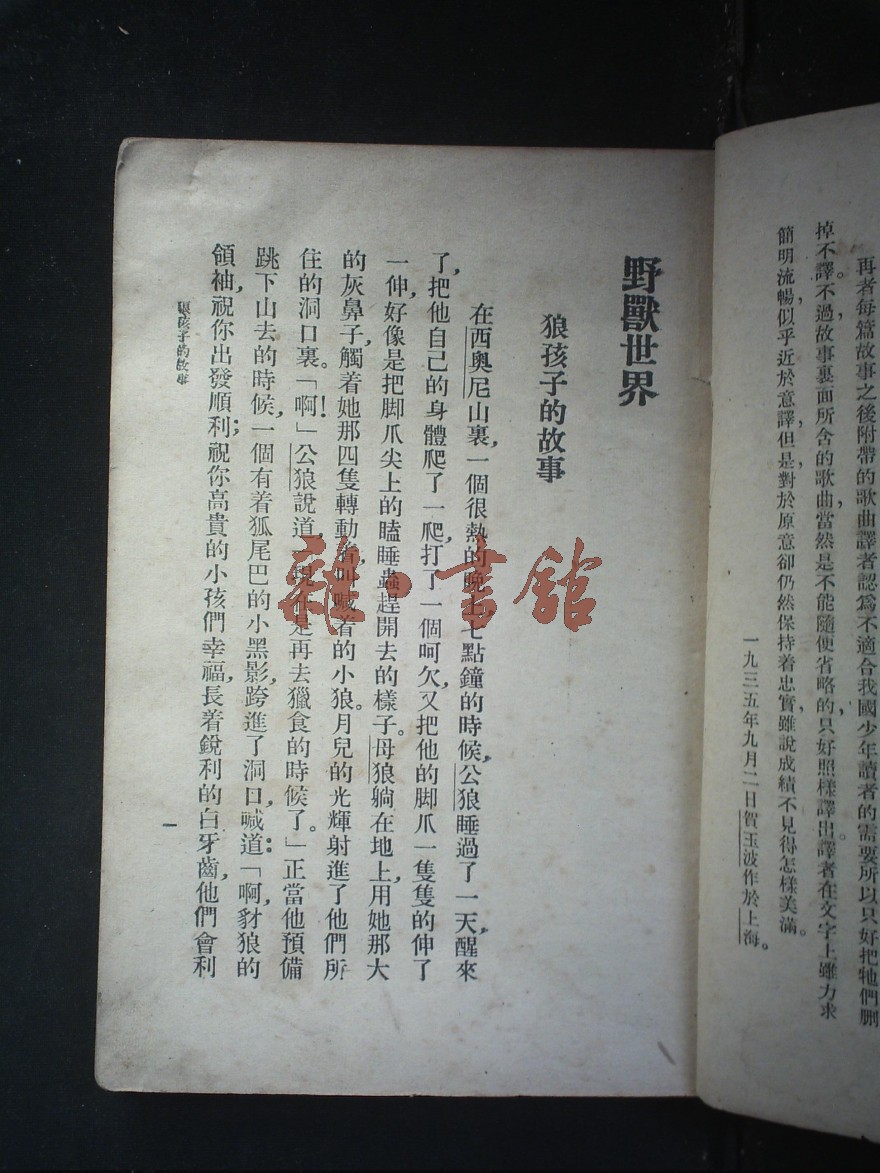 再者每篇故事之後附帶的歌曲譯者認爲不適合我國少年讀者的需要,所以只好把牠們删
掉不譯。不過故事裏面所含的歌曲,當然是不能隨便省略的,只好照樣譯出。譯者在文字上雖力求
簡明流暢,似乎近於意譯,但是對於原意,卻仍然保持着忠實,雖說成績不見得怎樣美滿。
一九三五年九月二日賀玉波作於上海。
野獸世界
狼孩子的故事
在西奧尼山裏,一個很熱的晚上七點鐘的時候,公狼睡過了一天,醒來
了,把他自己的身體爬了一爬,打了一個呵欠,又把他的脚爪一隻隻的伸了
一伸,好像是把脚爪尖上的瞌睡蟲趕開去的樣子。母狼躺在地上,用她那大
的灰鼻子,觸着她那四隻轉動着叫喊着的小狼。月兒的光輝射進了他們所
住的洞口裏。「啊!」公狼說道,是再去獵食的時候了。」正當他預備
跳下山去的時候,一個有着狐尾巴的小黑影,跨進了洞口,喊道:「啊,豺狼的
領袖,祝你出發順利;祝你高貴的小孩們幸福,長着銳利的白牙齒,他們會利
狼孩子的故事
一
雜·書舘